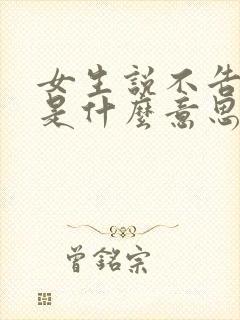 女生説不告
是什麼意思
曾銘宗